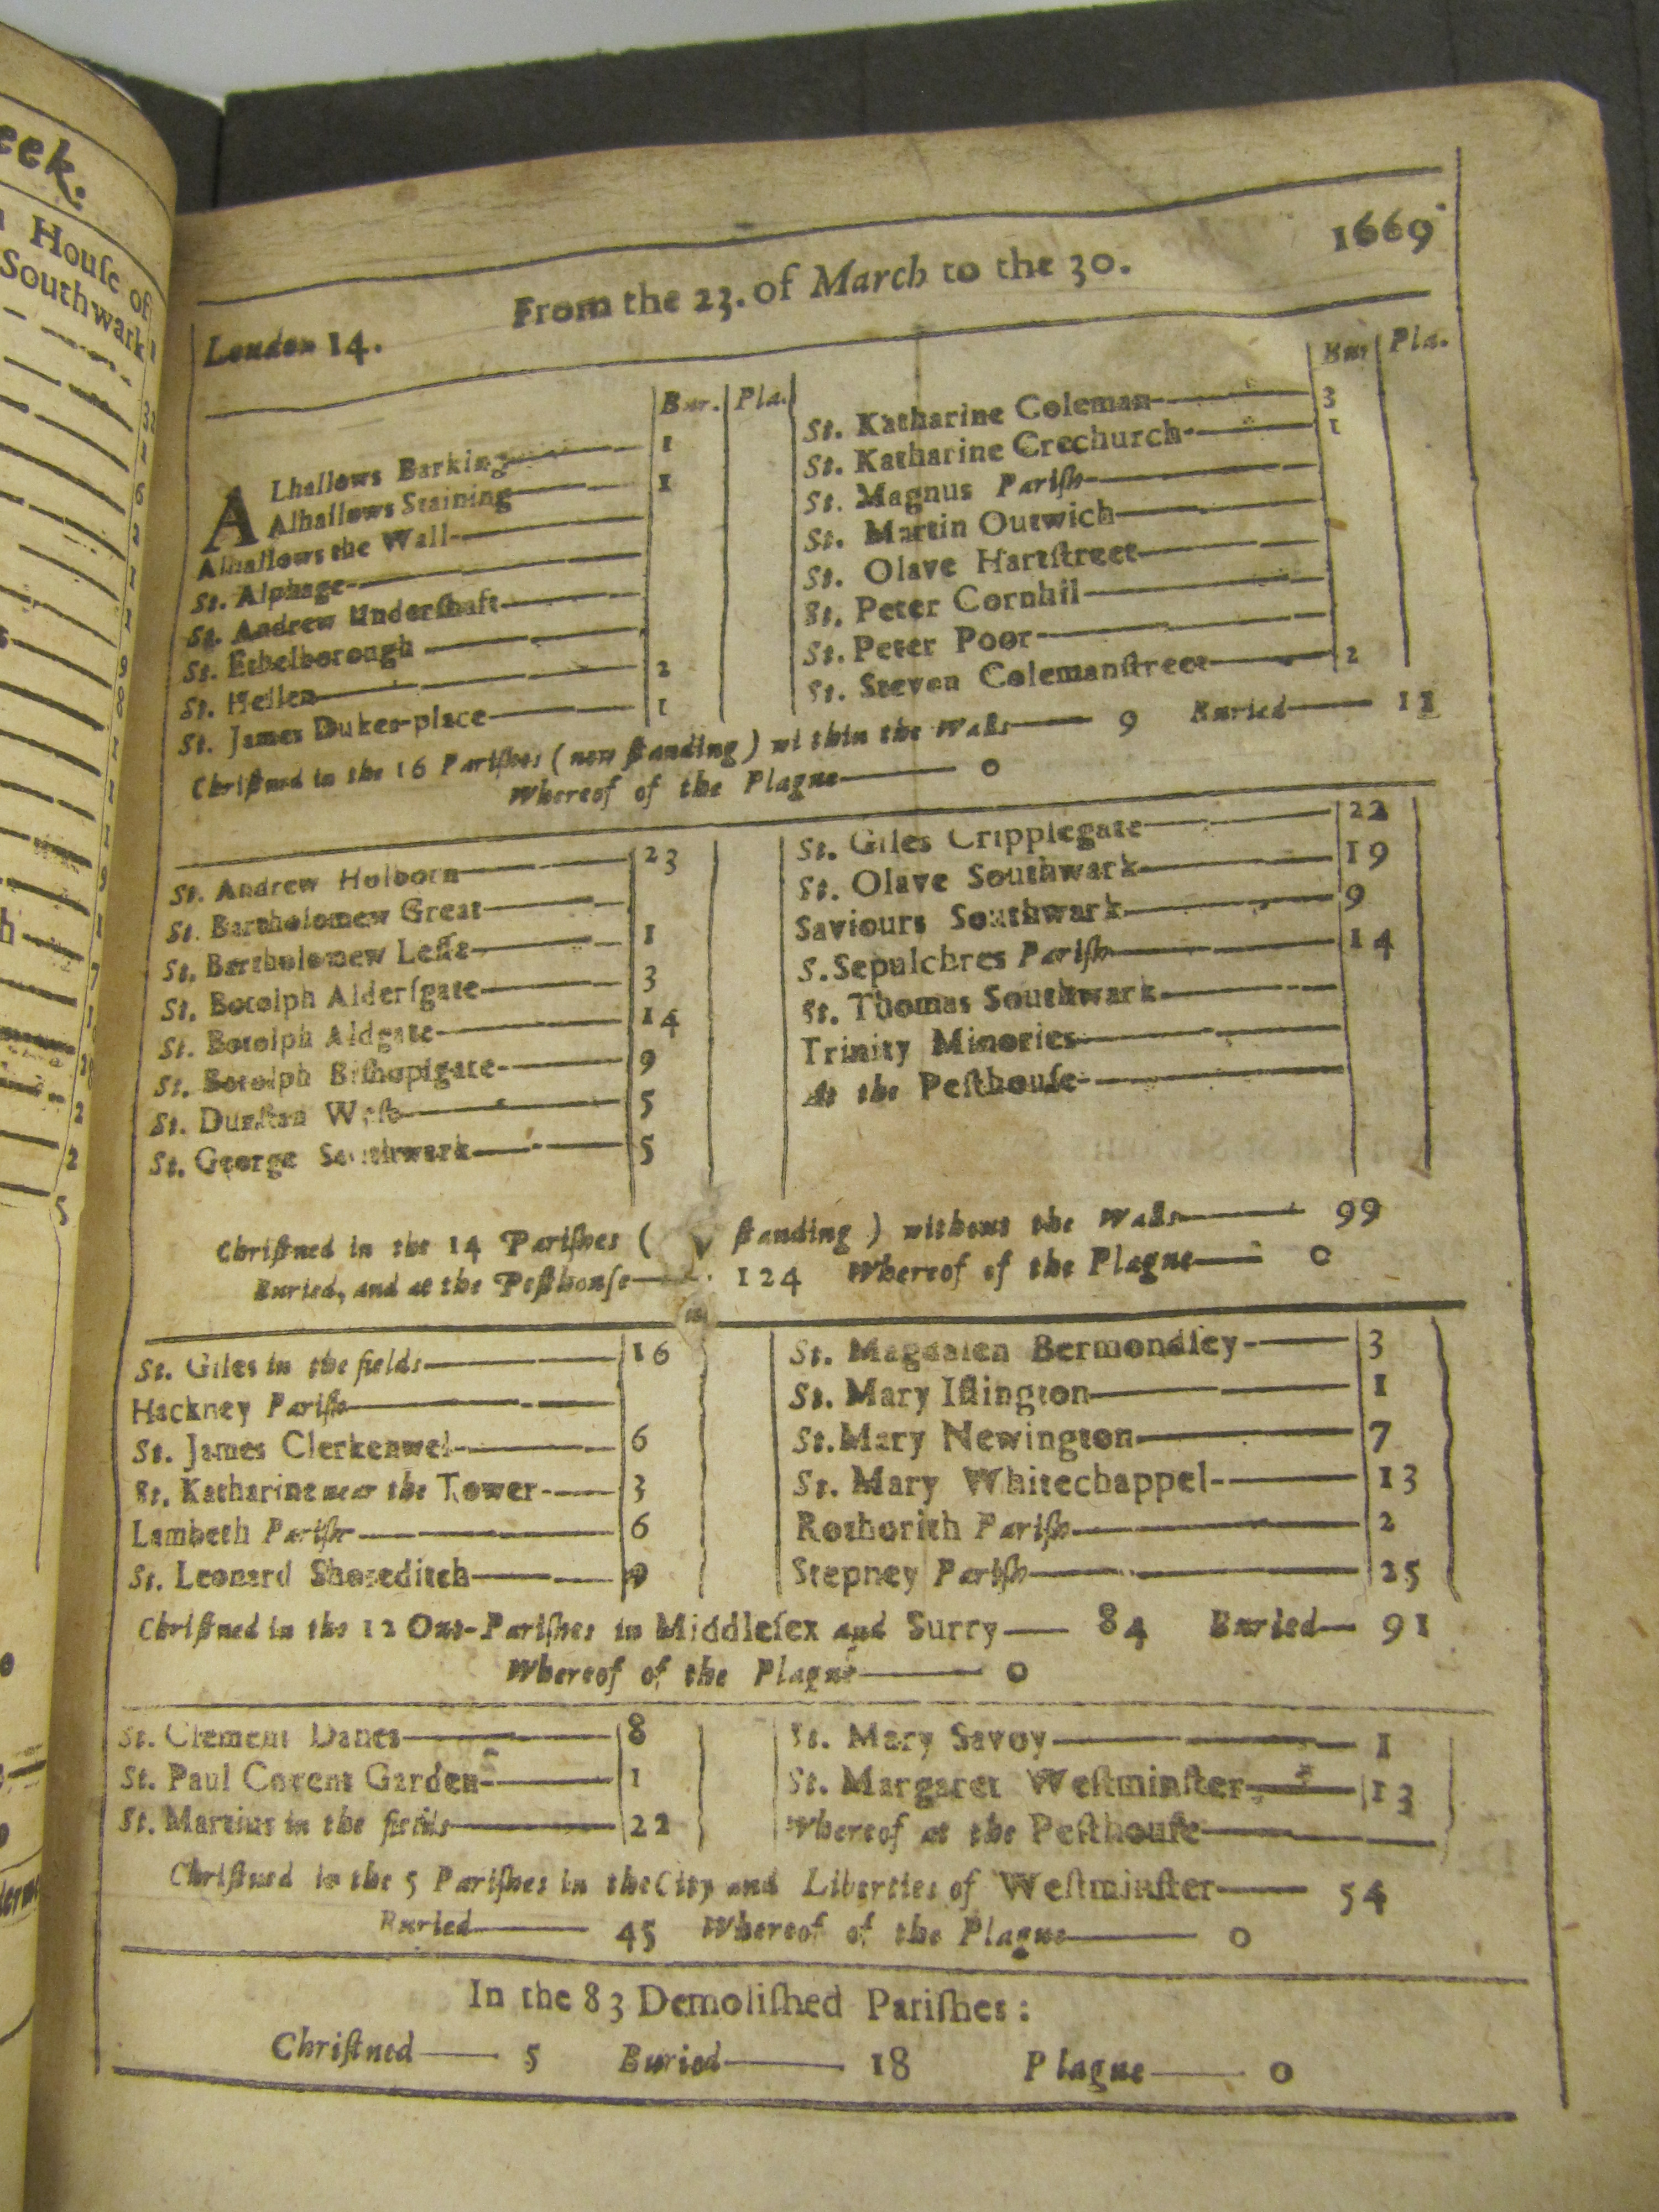 eek.
House of
Southwark
London 14.
From the 23. of March to the 30.
1669
Bur. Pla.
ALhallows Barking 1
Alhallows Staining 1
Alhallows the Wall
St. Alphage
St. Andrew Underſhaft
St. Ethelborough
St. Hellen 2
St. James Dukes-place 1
Bur Pla.
St. Katharine Coleman 3
St. Katharine Crechurch 1
St. Magnus Pariſh
St. Martin Outwich
St. Olave Hartſtreet
St. Peter Cornhil
St. Peter Poor
St. Steven Colemanſtreet 2
Chriſtned in the 16 Pariſhes (now ſtanding) within the Walls 9 Buried 11
Whereof of the Plague 0
St. Andrew Holborn 23
St. Bartholomew Great
St. Bartholomew Leſſe 1
St. Botolph Alderſgate 3
St. Botolph Aldgate 14
St. Botolph Biſhopſgate 9
St. Dunſtan Weſt 5
St. George Southwark 5
St. Giles Cripplegate 22
St. Olave Southwark 19
Saviours Southwark 9
S. Sepulchres Pariſh 14
St. Thomas Southwark
Trinity Minories
At the Peſthouſe
Chriſtned in the 14 Pariſhes ( ſtanding) without the Walls 99
Buried, and at the Peſthouſe 124 Whereof of the Plague 0
St. Giles in the fields 16
Hackney Pariſh
St. James Clerkenwel 6
St. Katharine near the Tower 3
Lambeth Pariſh 6
St. Leonard Shoreditch 9
St. Magdalen Bermondſey 3
St. Mary Iſlington 1
St. Mary Newington 7
St. Mary Whitechappel 13
Rothorith Pariſh 2
Stepney Pariſh 25
Chriſtned in the 12 Out-Pariſhes in Middleſex and Surry 84 Buried 91
Whereof of the Plague 0
St. Clement Danes 8
St. Paul Covent Garden 1
St. Martins in the fields 22
St. Mary Savoy 1
St. Margaret Weſtminſter 13
Whereof at the Peſthouſe
Chriſtned in the 5 Pariſhes in the City and Liberties of Weſtminſter 54
Buried 45 Whereof of the Plague 0
In the 83 Demoliſhed Pariſhes:
Chriſtned 5 Buried 18 Plague 0